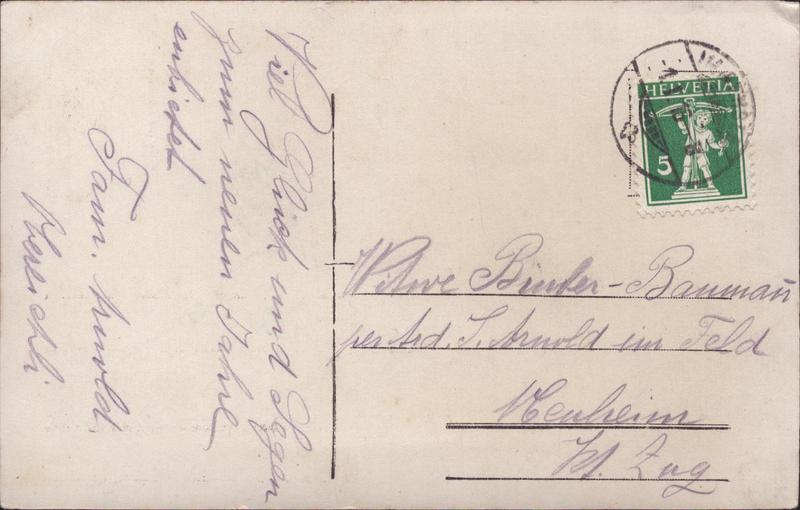 Viel Glück und Segen
zum neuen Jahre
entbietet
Fam. Arnold
HELVETIA
5
Witwe Binder-Bauman
per Ad. J. Arnold im Feld
Kt. Zug